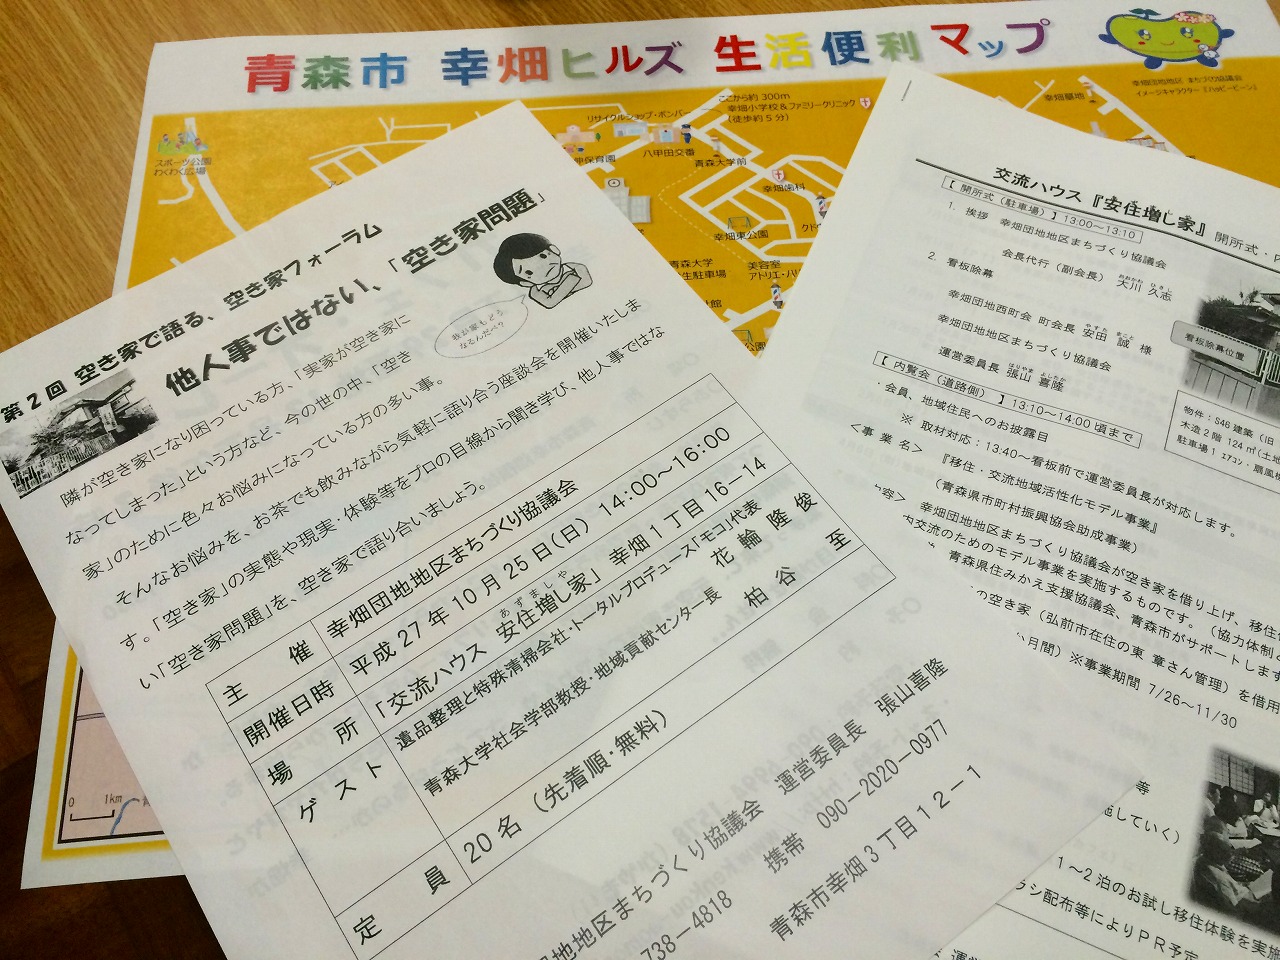 青森市 幸畑ヒルズ 生活便利マップ
幸畑団地地区 まちづくり協議会
イメージキャラクター『ハッピービーン』
スポーツ公園
わくわく広場
リサイクルショップ・ボンバー
ここから約300m
幸畑小学校&ファミリークリニック
(徒歩約5分)
幸畑墓地
保育園
八甲田交番
青森大学前
幸畑歯科
幸畑東公園
青森大学
生駐車場
美容室
アトリエ・ハ
0 1km
第2回 空き家で語る、空き家フォーラム
他人事ではない、「空き家問題」
我が家もどう
なるんだべ?
隣が空き家になり困っている方、「実家が空き家に
なってしまった」という方など、今の世の中、「空き
家」のために色々お悩みになっている方の多い事。
そんなお悩みを、お茶でも飲みながら気軽に語り合う座談会を開催いたしま
す。「空き家」の実態や現実・体験等をプロの目線から聞き学び、他人事ではな
い「空き家問題」を、空き家で語り合いましょう。
主催 幸畑団地地区まちづくり協議会
開催日時 平成27年10月25日(日) 14:00～16:00
あずましや
場所 「交流ハウス 安住増し家」 幸畑1丁目16-14
ゲスト 遺品整理と特殊清掃会社・トータルプロデュース「モコ」代表
花輪 隆俊
青森大学社会学部教授・地域貢献センター長 柏谷 至
定員 20名 (先着順・無料)
地地区まちづくり協議会 運営委員長 張山喜隆
738-4818 携帯 090-2020-0977
青森市幸畑3丁目12-1
交流ハウス『安住増し家』開所式・内
【 開所式(駐車場) 】 13:00～13:10
1. 挨拶 幸畑団地地区まちづくり協議会
会長代行(副会長) 大川 久志
2. 看板除幕
幸畑団地西町会 町会長 安田 誠 様
幸畑団地地区まちづくり協議会
運営委員長 張山 喜隆
看板除幕位置
【 内覧会(道路側) 】 13:10～14:00頃まで
・会員、地域住民へのお披露目
※ 取材対応:13:40～看板前で運営委員長が対応します。
物件:S46建築(旧
木造2階 124㎡(土地
駐車場1 エアコン・扇風機
<事業名> 『移住・交流地域活性化モデル事業』
(青森県市町村振興協会助成事業)
内容> 幸畑団地地区まちづくり協議会が空き家を借り上げ、移住
内交流のためのモデル事業を実施するものです。(協力体制
青森県住みかえ支援協議会、青森市がサポートします
の空き家(弘前市在住の東 章さん管理)を借用
か月間)※事業期間 7/26～11/30
等
施していく)
1～2泊のお試し移住体験を実施
ラシ配布等によりPR予定